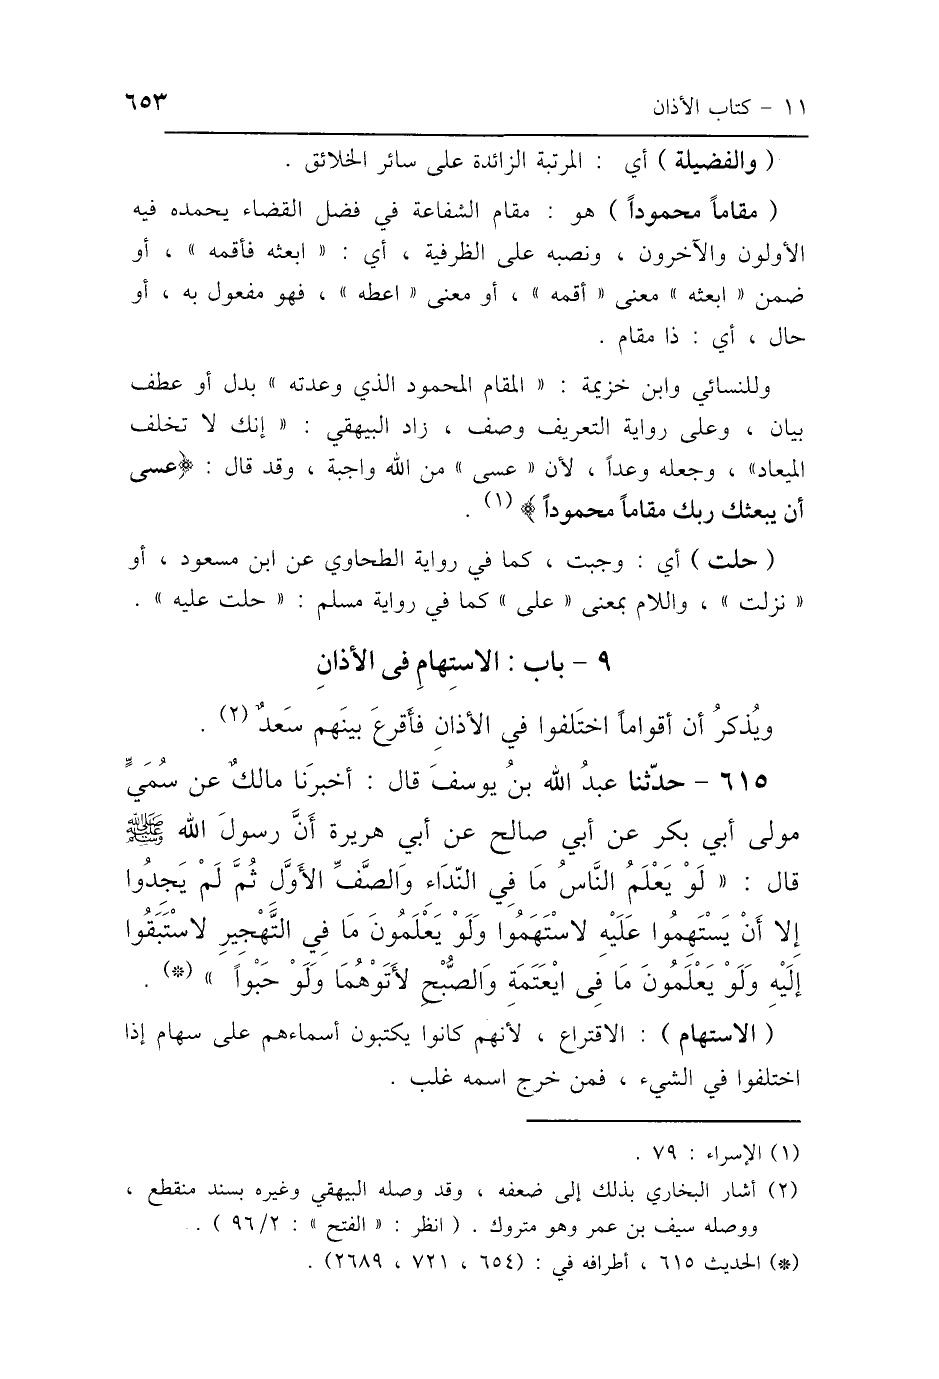 ١١ - كتاب الأذان ٦٥٣
( والفضيلة ) أي : المرتبة الزائدة على سائر الخلائق .
( مقاماً محموداً ) هو : مقام الشفاعة في فضل القضاء يحمده فيه
الأولون والآخرون ، ونصبه على الظرفية ، أي : « ابعثه فأقمه » ، أو
ضمن « ابعثه » معنى « أقمه » ، أو معنى « اعطه » ، فهو مفعول به ، أو
حال ، أي : ذا مقام .
وللنسائي وابن خزيمة : « المقام المحمود الذي وعدته » بدل أو عطف
بيان ، وعلى رواية التعريف وصف ، زاد البيهقي : « إنك لا تخلف
الميعاد» ، وجعله وعداً ، لأن « عسى » من الله واجبة ، وقد قال : ﴿عسى
أن يبعثك ربك مقاماً محموداً ﴾ (١) .
( حلت ) أي : وجبت ، كما في رواية الطحاوي عن ابن مسعود ، أو
« نزلت » ، واللام بمعنى « على » كما في رواية مسلم : « حلت عليه » .
٩ - باب : الاستِهامِ فى الأذانِ
ويُذكرُ أن أقواماً اختَلفوا في الأذانِ فأَقرعَ بينَهم سَعدٌ (٢) .
٦١٥ - حدّثنا عبدُ الله بنُ يوسفَ قال : أخبرَنا مالكٌ عن سُمَيٍّ
مولى أبي بكر عن أبي صالح عن أبي هريرة أنَّ رسولَ الله ﷺ
قال : « لَوْ يَعْلَمُ النَّاسُ مَا فِي النّدَاءِ وَالصَّفِّ الأَوَّلِ ثُمَّ لَمْ يَجِدُوا
إِلا أَنْ يَسْتَهِمُوا عَلَيْهِ لاسْتَهَمُوا وَلَوْ يَعْلَمُونَ مَا فِي التَّهْجِيرِ لاسْتَبَقُوا
إِلَيْهِ وَلَوْ يَعْلَمُونَ مَا فِى ايْعَتَمَةِ وَالصُّبْحِ لأَتَوْهُمَا وَلَوْ حَبْواً » (*) .
( الاستهام ) : الاقتراع ، لأنهم كانوا يكتبون أسماءهم على سهام إذا
اختلفوا في الشيء ، فمن خرج اسمه غلب .
(١) الإسراء : ٧٩ .
(٢) أشار البخاري بذلك إلى ضعفه ، وقد وصله البيهقي وغيره بسند منقطع ،
ووصله سيف بن عمر وهو متروك . ( انظر : « الفتح » : ٩٦/٢ ) .
(*) الحديث ٦١٥ ، أطرافه في : (٦٥٤ ، ٧٢١ ، ٢٦٨٩) .